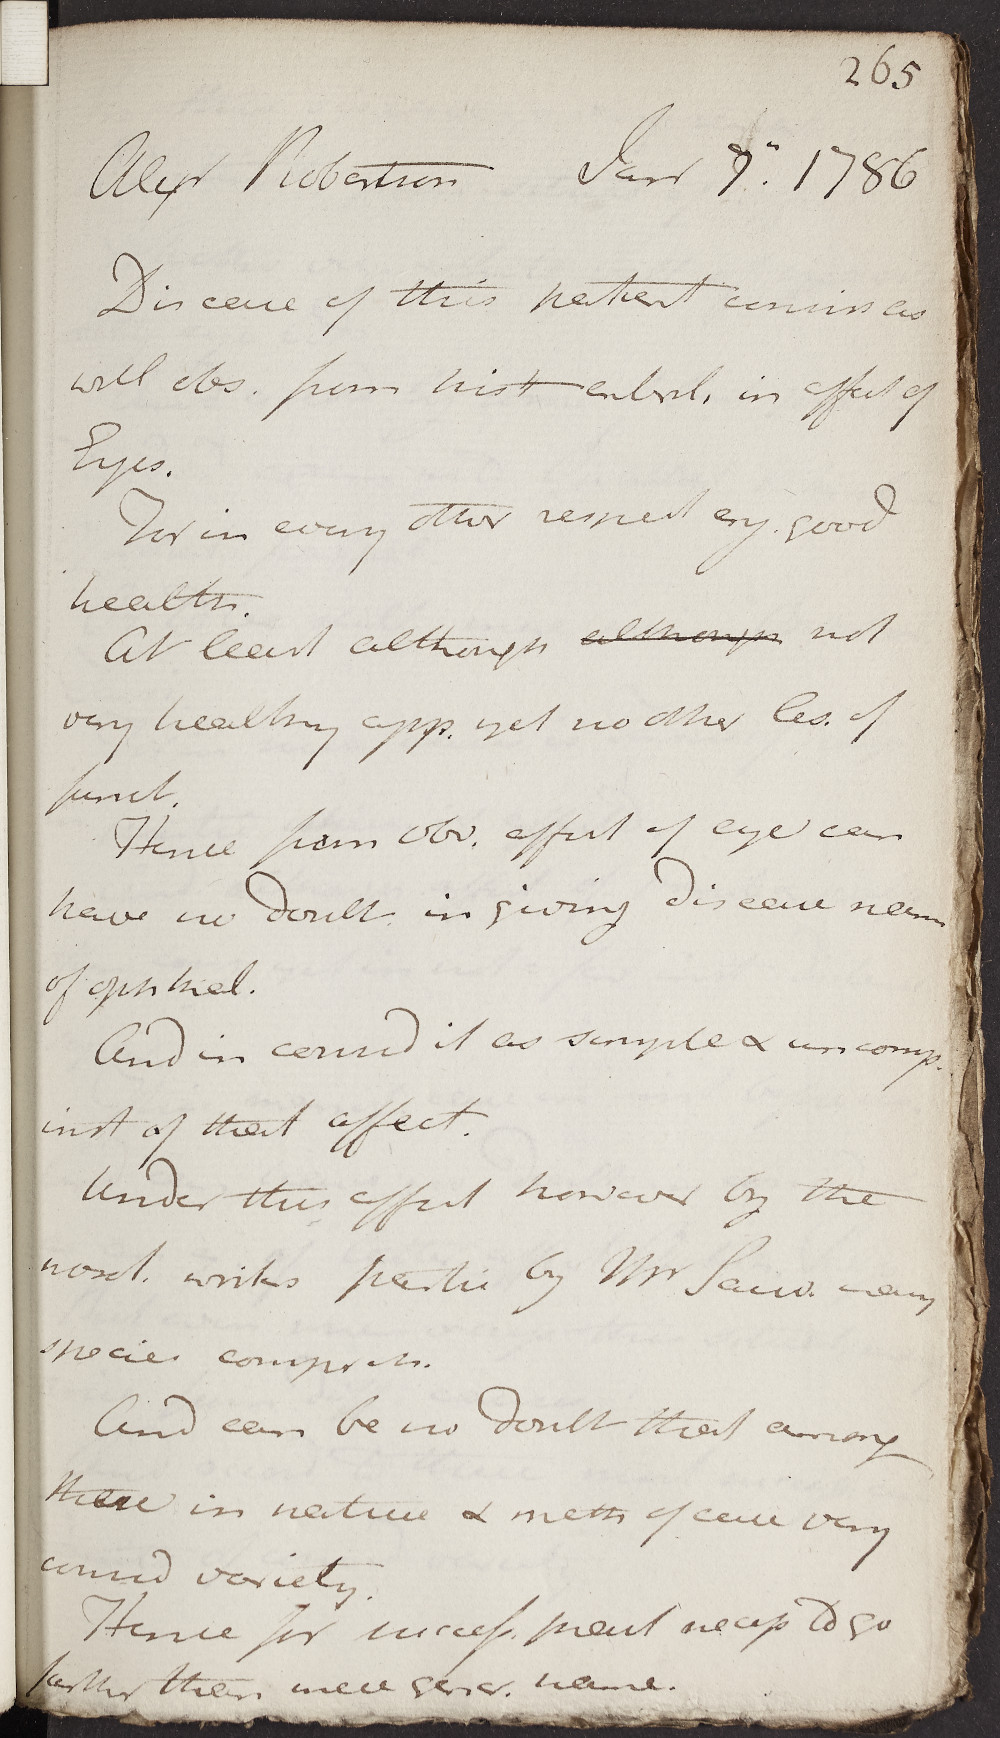 265
Alexr Robertson Janr 7". 1786
Disease of this patient consists as
will obs. from hist in affect of
Eyes.
For in every other respect enj. good
health.
At least although although not
very healthy app. yet no other les. of
funct.
Hence from obv. affect of eye can
have no doubt in giving disease name
of ophthal.
And in consid it as simple & uncomp.
inst of that affect.
Under this affect however by the
nosol. writers partic by Mr Sauv. many
species compreh.
And can be no doubt that among
these in nature & meth of cure very
consid variety.
Hence for success. pract necess to go
further than mere gener. name.